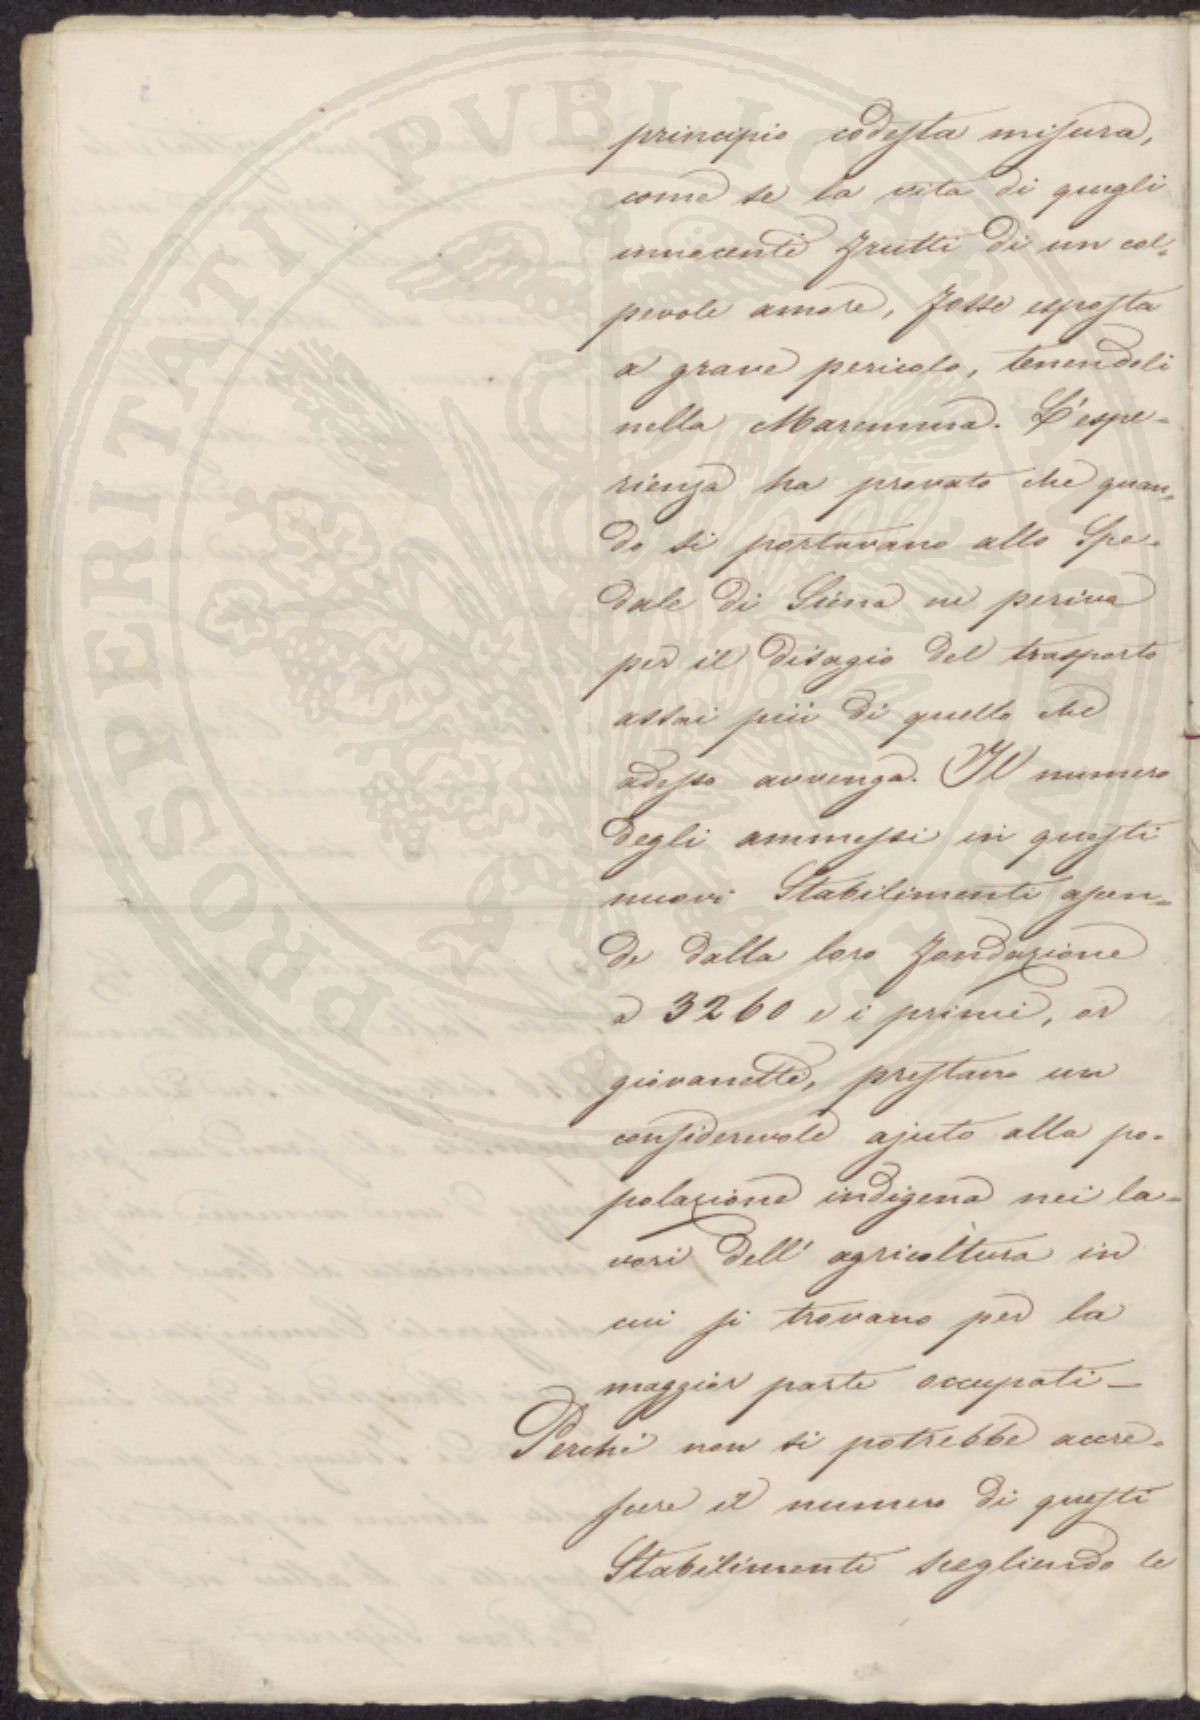 PROSPERITATI PVBLICAE
principio codesta misura,
come se la vita di quegli
innocenti frutti di un col-
pevole amore, fosse esposta
a grave pericolo, tenendoli
nella Maremma. L'espe-
rienza ha provato che quan-
do si portavano allo Spe-
dale di Siena ne periva
per il disagio del trasporto
assai più di quello che
adesso avvenga. Il numero
degli ammessi in questi
nuovi Stabilimenti ascen-
de dalla loro fondazione
a 3260 e i primi, or
giovanetti, prestano un
considerevole ajuto alla po-
polazione indigena nei la-
vori dell' agricoltura in
cui si trovano per la
maggior parte occupati —
Perchè non si potrebbe accre-
scere il numero di questi
Stabilimenti scegliendo le